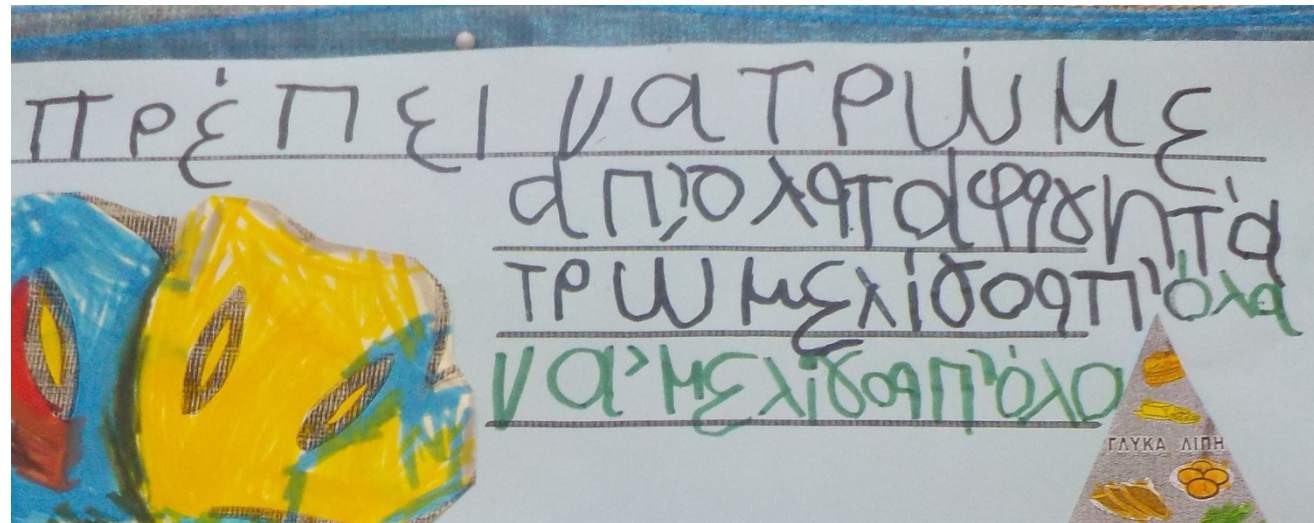 πρέπει να τρώμε
απ' όλα τα φαγητά
τρωμε λίγο απ' όλα
να 'με λίγο απ' όλα
ΓΛΥΚΑ ΛΙΠΗ